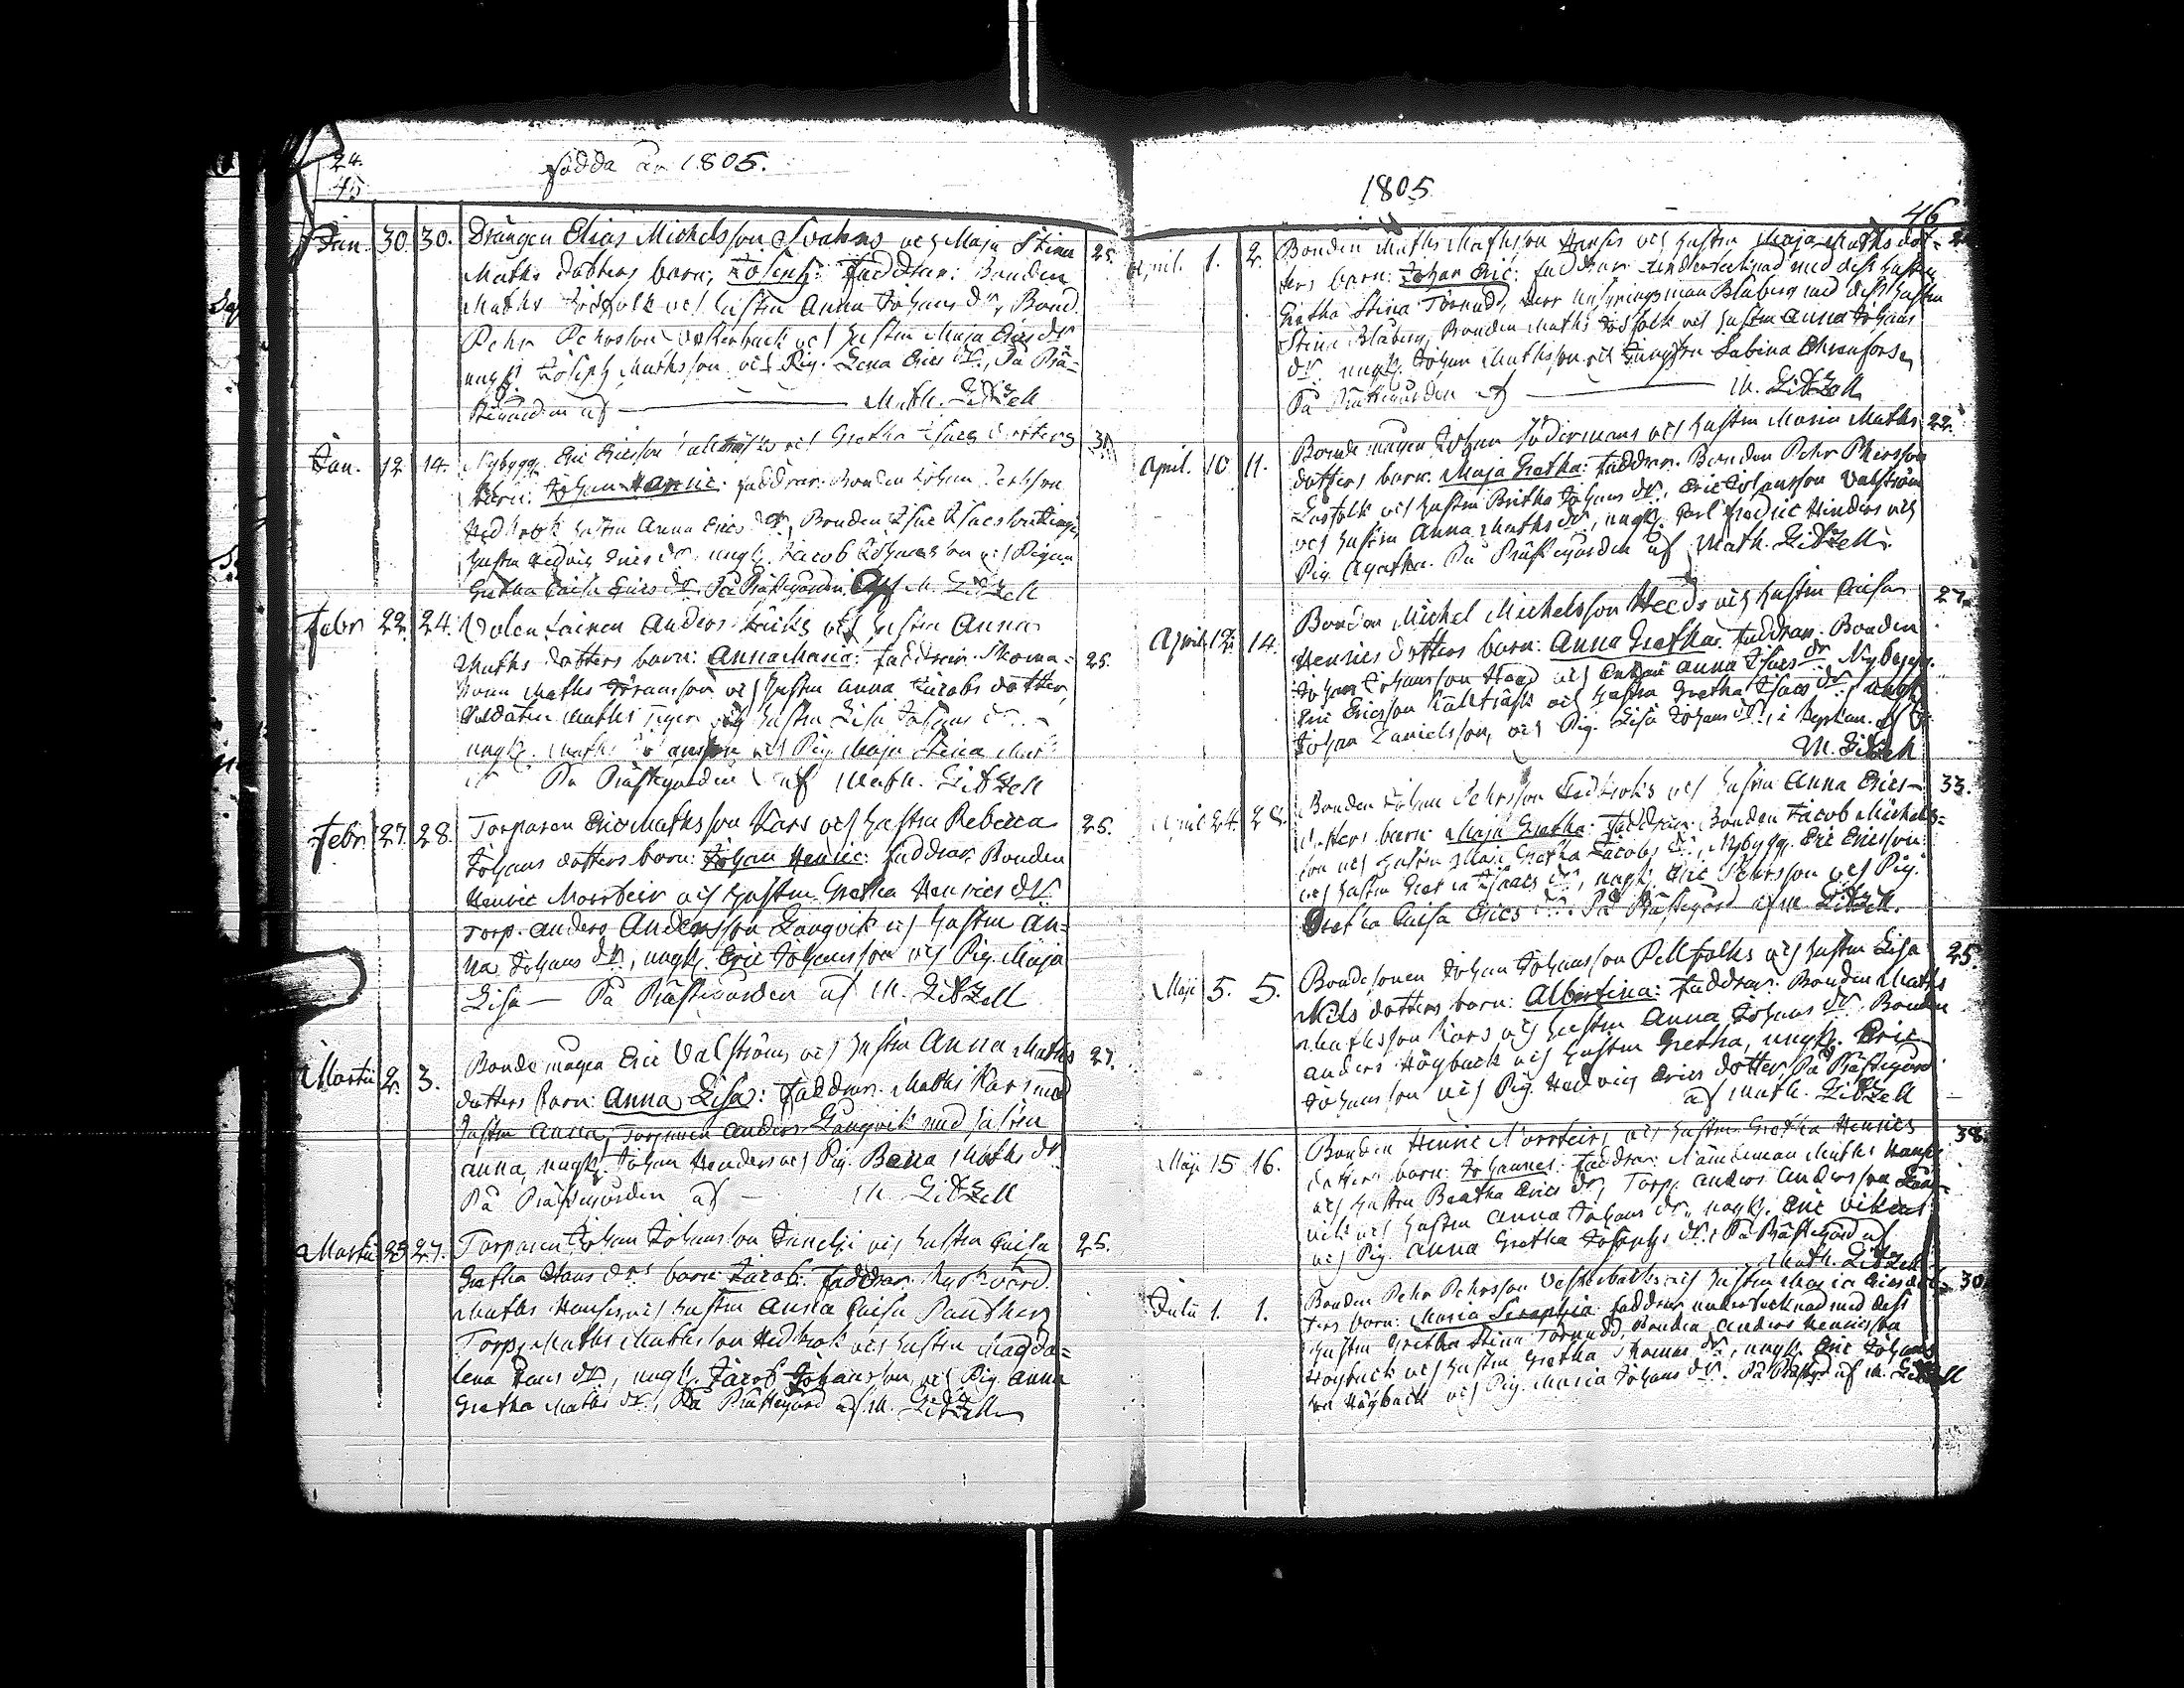 24.
45
födda år 1805.
Jan. 30. 30. Drängen Elias Michelsson Svahns och Maja Stina 25.
Maths dotters barn; Joseph: faddrar: Bonden
Maths Jossfolk och hustru Anna Johans dr, Bond.
Pehr Pehrsson Vesterback och hustru Maja Erics dr
ungk. Joseph Mathsson och Pig. Lena Erics dr, På Prä=
stgården af Math. Litzell
Jan. 12 14. Nybygg. Eric Ericsson och Gretha Isacs dotters 31.
barn: Johan Henric: faddrar: Bonden Johan Pehrsson
Hedkrok hustru Anna Erics dr, Bonden Isac Isacsson
hustru Hedvig Erics dr ungk. Jacob Johansson och Pigan
Gretha Caisa Erics dr På Prästgården Af M. Litzell
Febr 22. 24. Volontairen Anders och hustru Anna
Maths dotters barn: Anna Maria: faddrar: Skoma= 25.
karen Maths Göransson och hustru Anna Jacobs dotter,
Soldaten Maths och hustru Lisa Johans dr
ungk. Maths och Pig. Maja Stina
På Prästgården af Math. Litzell
Febr 27. 28. Torparen Eric Mathsson Kars och hustru Rebecca 25.
Johans dotters barn: Johan Henric: faddrar Bonden
Henric Morrbeir och hustru Gretha Henrics dr
Torp. Anders Andersson Langvik och hustru An=
na Johans dr, ungk. Eric Johansson och Pig. Maja
Lisa — På Prästgården af M. Litzell
Martii 2. 3. Bondemågen Eric Valström och hustru Anna Maths 27.
dotters barn: Anna Lisa: faddrar: Maths Kars med
hustru Anna, Torparen Anders Langvik med hustru
Anna, ungk. Johan Henders och Pig. Maths dr
På Prästgården af — M. Litzell
Martii 25 27. Torparen Johan Johansson och hustru Caisa 25.
Gretha Hans drs barn: Jacob: faddrar: Kyrkovärd.
Maths Hanses och hustru Anna Caisa
Torp. Maths Mathsson Hedkrok och hustru Magda=
lena dr, ungk. Jacob Johansson, och Pig. Anna
Gretha Maths dr, På Prästegård af M. Litzell
1805
46
April. 1. 2. Bonden Maths Mathsson Hanses och hustru Maja Maths dot=
ters barn: Johan Eric: faddrar undertecknad med dess hustru
Gretha Stina Törnudd, Blåberg med dess hustru
Stina Blåberg, Bonden Maths Jossfolk och hustru Anna Johans
dr ungk. Johan Mathsson och Jungfru Sabina Ehrenfors
På Prästegården af M. Litzell
April. 10. 11. Bondemågen Johan Södermans och hustru Maria Maths 22.
dotters barn: Maja Gretha: faddrar. Bonden Pehr Phersson
och hustru Britha Johans dr, Eric Johansson Valström
och hustru Anna Maths dr, ungk. Carl Fredric Henders och
Pig. Agatha. På Prästegården af Math. Litzell.
April 12. 14. Bonden Michel Michelsson Heeds och hustru Caisa 27.
Henrics dotters barn: Anna Gretha: faddrar. Bonden
Johan Johansson Heed och Enkan Anna Isacs dr Nybygg.
Eric Ericsson och hustru Gretha Isacs dr, ungk
Johan Danielsson, och Pig. Lisa Johans dr, i kyrkan. Af
M. Litzell
April 24. 28. Bonden Johan Pehrsson Hedkroks och hustru Anna Erics= 33.
dotters barn: Maja Gretha: faddrar: Bonden Jacob Michels=
son och hustru Maja Gretha Jacobs dr, Nybygg. Eric Ericsson
och hustru Gretha Isaacs dr, ungk. Eric Pehrsson och Pig.
Gretha Caisa Erics dr. På Prästegård af M. Litzell.
Maji 5. 5. Bondesonen Johan Johansson Pellfolks och hustru Lisa 25.
Nils dotters barn: Albertina: faddrar. Bonden Maths
Mathsson Kars och hustru Anna Johans dr Bonden
Anders Högback och hustru Gretha, ungk. Eric
Johansson och Pig. Hedvig Erics dotter På Prästegård
af Math. Litzell
Maji 15 16. Bonden Henric Morrbeirs och hustru Gretha Henrics 38.
dotters barn: Johannes: faddrar: Nämdeman Maths Hanses
och hustru Beatha Erics dr, Torp. Anders Andersson Lång=
vik och hustru Anna Johans dr, ungk. Eric
och Pig. Anna Gretha Josephs dr: På Prästegård af
Math. Litzell
Julii 1. 1. Bonden Pehr Pehrsson Vesterbacks och hustru Maria Erics dot= 30
ters barn: Maria Seraphia: faddrar undertecknad med dess
hustru Gretha Stina Törnudd, Bonden Anders Henricsson
Högback och hustru Gretha Thomas dr, ungk. Eric Johans
son Högback och Pig. Maria Johans dr. På Prästgd af M. Litzell